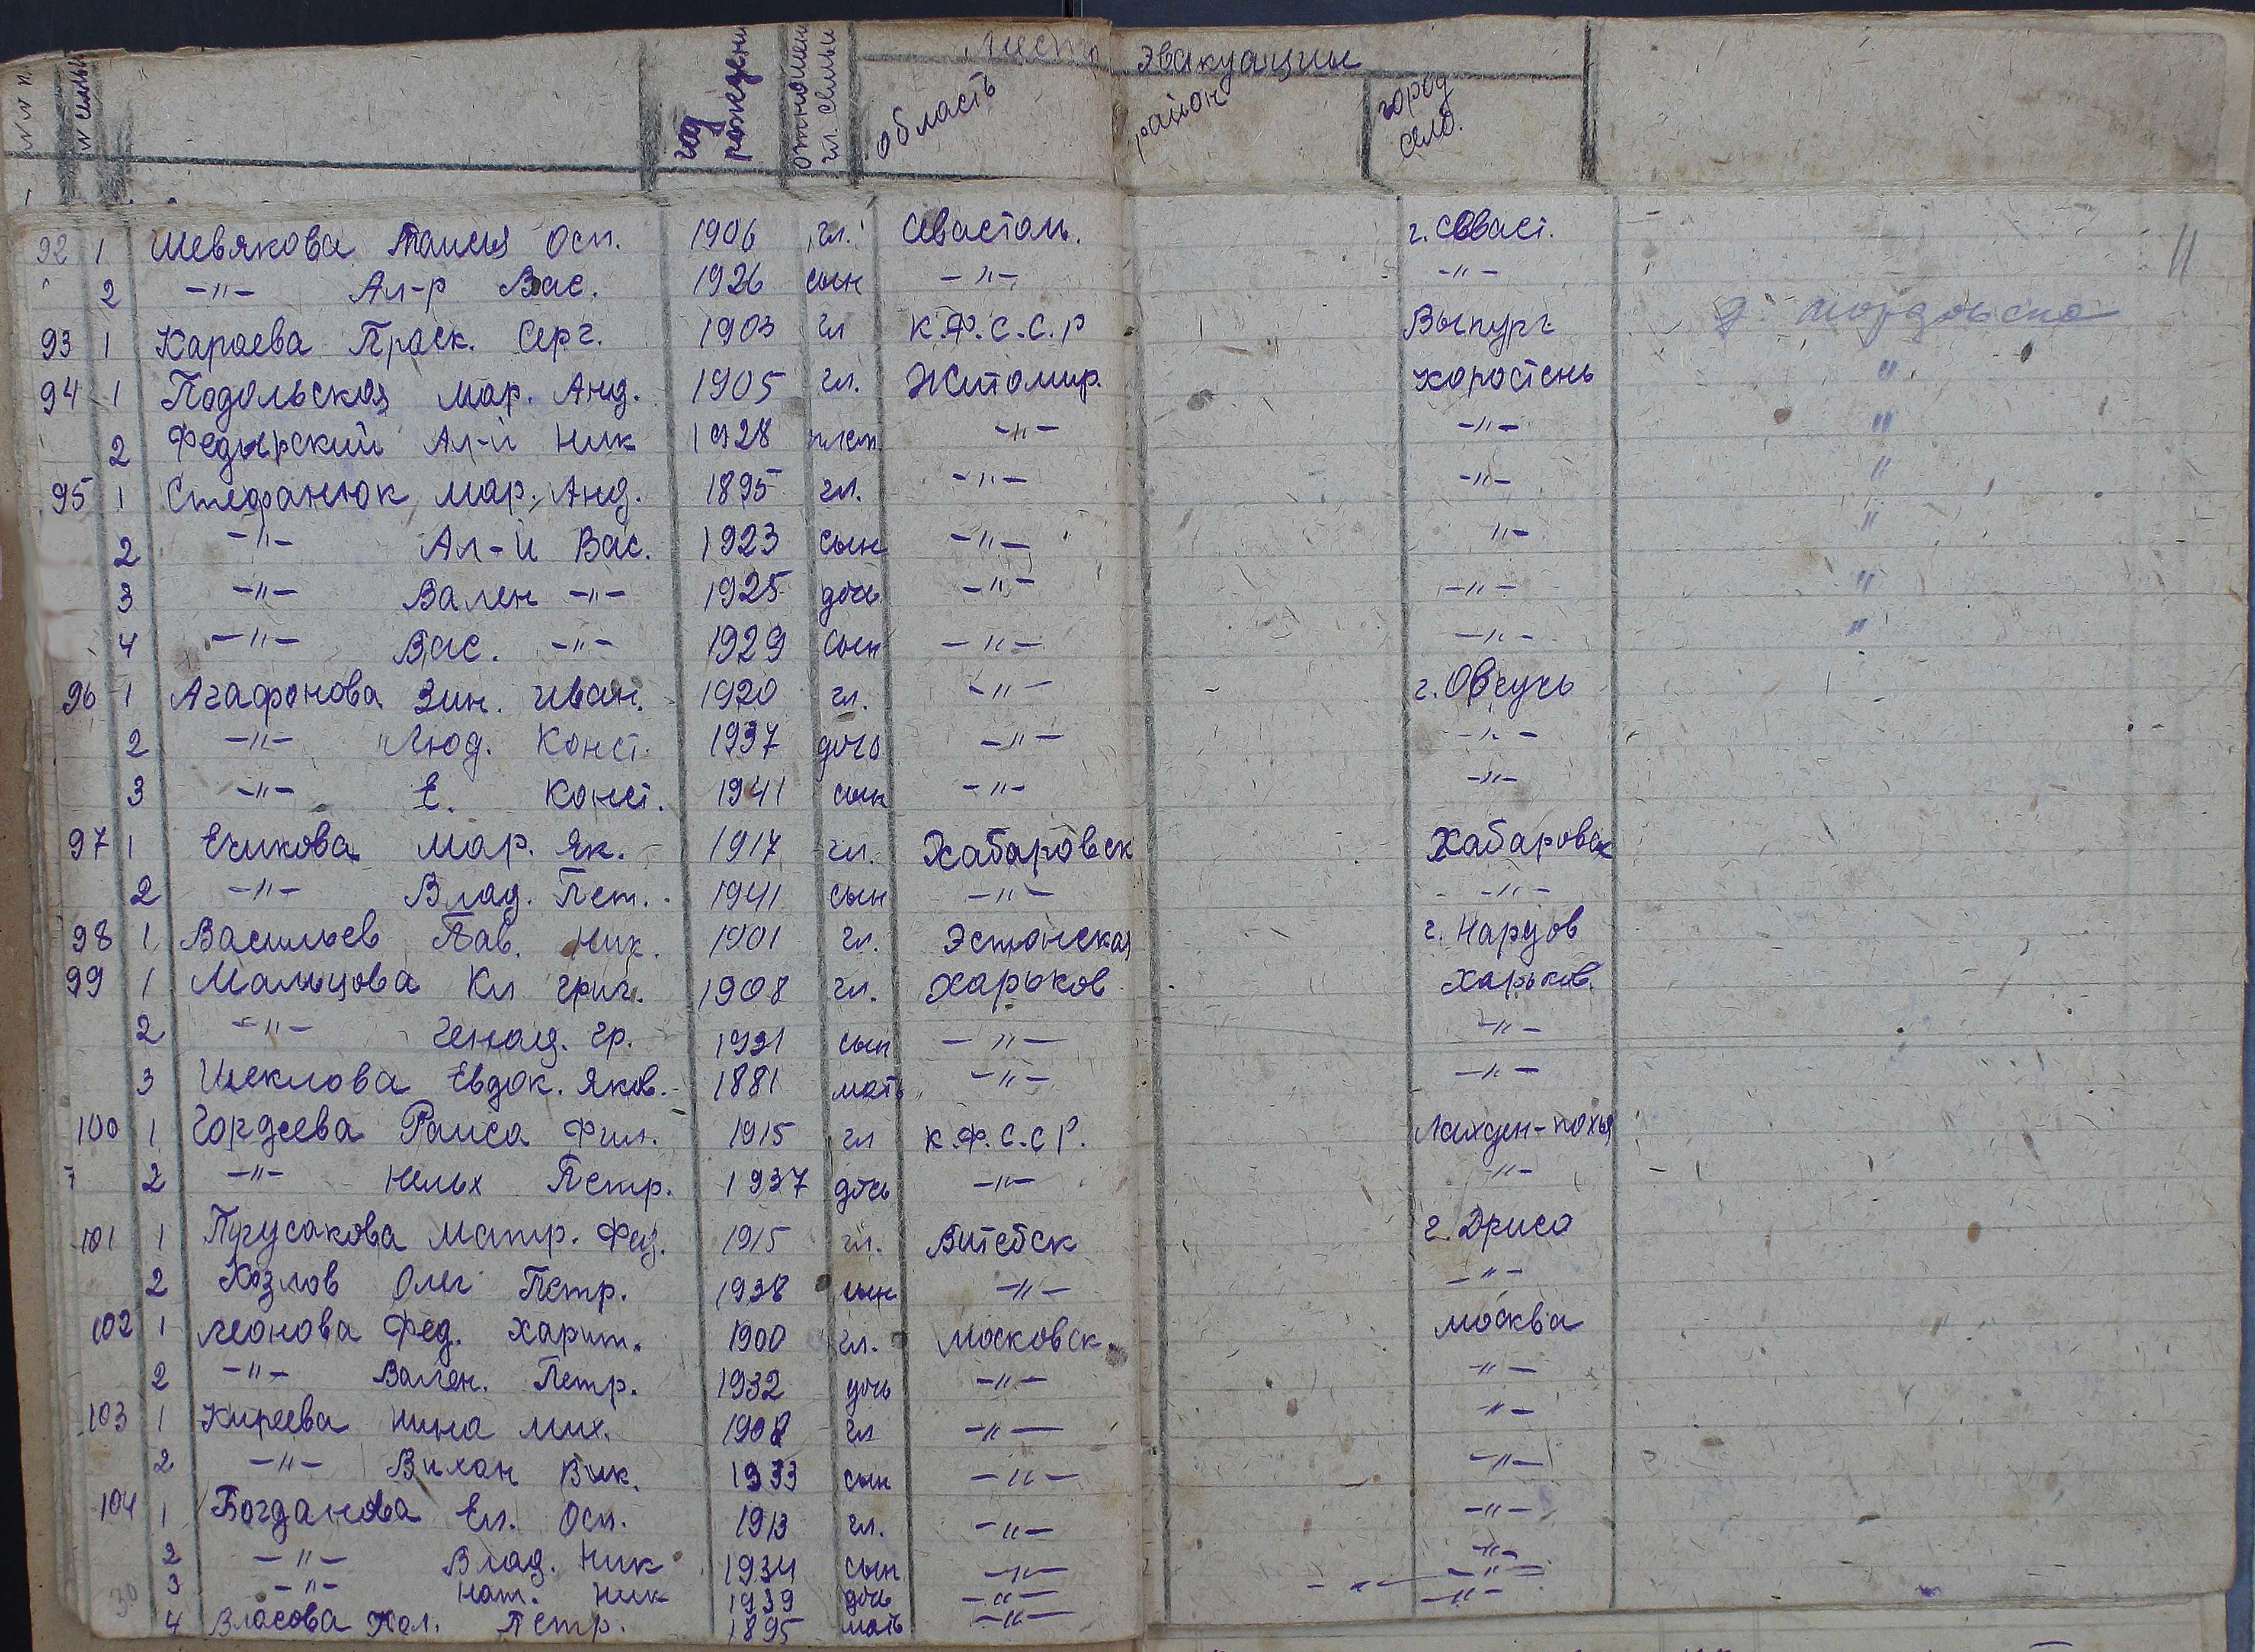 место эвакуации
№ № п. № семьи год рождения отношен. гл. семьи область район город село.
11
92 1 Шевякова Таисия Осип. 1906 гл. Севастоп. г. Севаст.
2 -"- Ал-р Вас. 1926 сын -"- -"-
93 1 Караева Праск. Серг. 1903 гл К.Ф.С.С.Р Выпург д.
94 1 Подольская Мар. Анд. 1905 гл. Житомир. Коростень "
2 Ал-й Ник 1928 плем. -"- -"- "
95 1 Стефанюк Мар. Анд. 1895 гл. -"- -"- "
2 -"- Ал-й Вас. 1923 сын -"- "- "
3 -"- Вален -"- 1925 дочь -"- -"- "
4 -"- Вас. -"- 1929 сын -"- -"- "
96 1 Агафонова Зин. Иван. 1920 гл. -"- г. Овруч
2 -"- Люд. Конст. 1937 дочь -"- -"-
3 -"- Е. Конст. 1941 сын -"- -"-
97 1 Ечикова Мар. Як. 1917 гл. Хабаровск Хабаровск
2 -"- Влад. Пет. 1941 сын -"- -"-
98 1 Васильев Пав. Ник. 1901 гл. Эстонская г.
99 1 Мальцова Кл Григ. 1908 гл. Харьков Харьков
2 -"- Генад. Гр. 1931 сын -"- -"-
3 Шеклова Евдок. Яков. 1881 мать -"- -"-
100 1 Гордеева Раиса Фил. 1915 гл К.Ф.С.С Р. Лахден-похья
2 -"- Петр. 1937 дочь -"- "-
101 1 Матр. 1915 гл. Витебск г. Дриса
2 Козлов Олег Петр. 1938 сын -"- -"-
102 1 Леонова Фед. Харит. 1900 гл. Московск. Москва
2 -"- Вален. Петр. 1932 дочь -"- -"-
103 1 Киреева Нина Мих. 1908 гл -"- -"-
2 -"- Вилан Вик. 1933 сын -"- -"-
104 1 Богданова Ел. Осип. 1913 гл. -"- -"-
2 -"- Влад. Ник 1934 сын -"- -"-
3 -"- Нат. Ник 1939 дочь -"- -"-
30 4 Власова Пел. Петр. 1895 мать -"- -"-